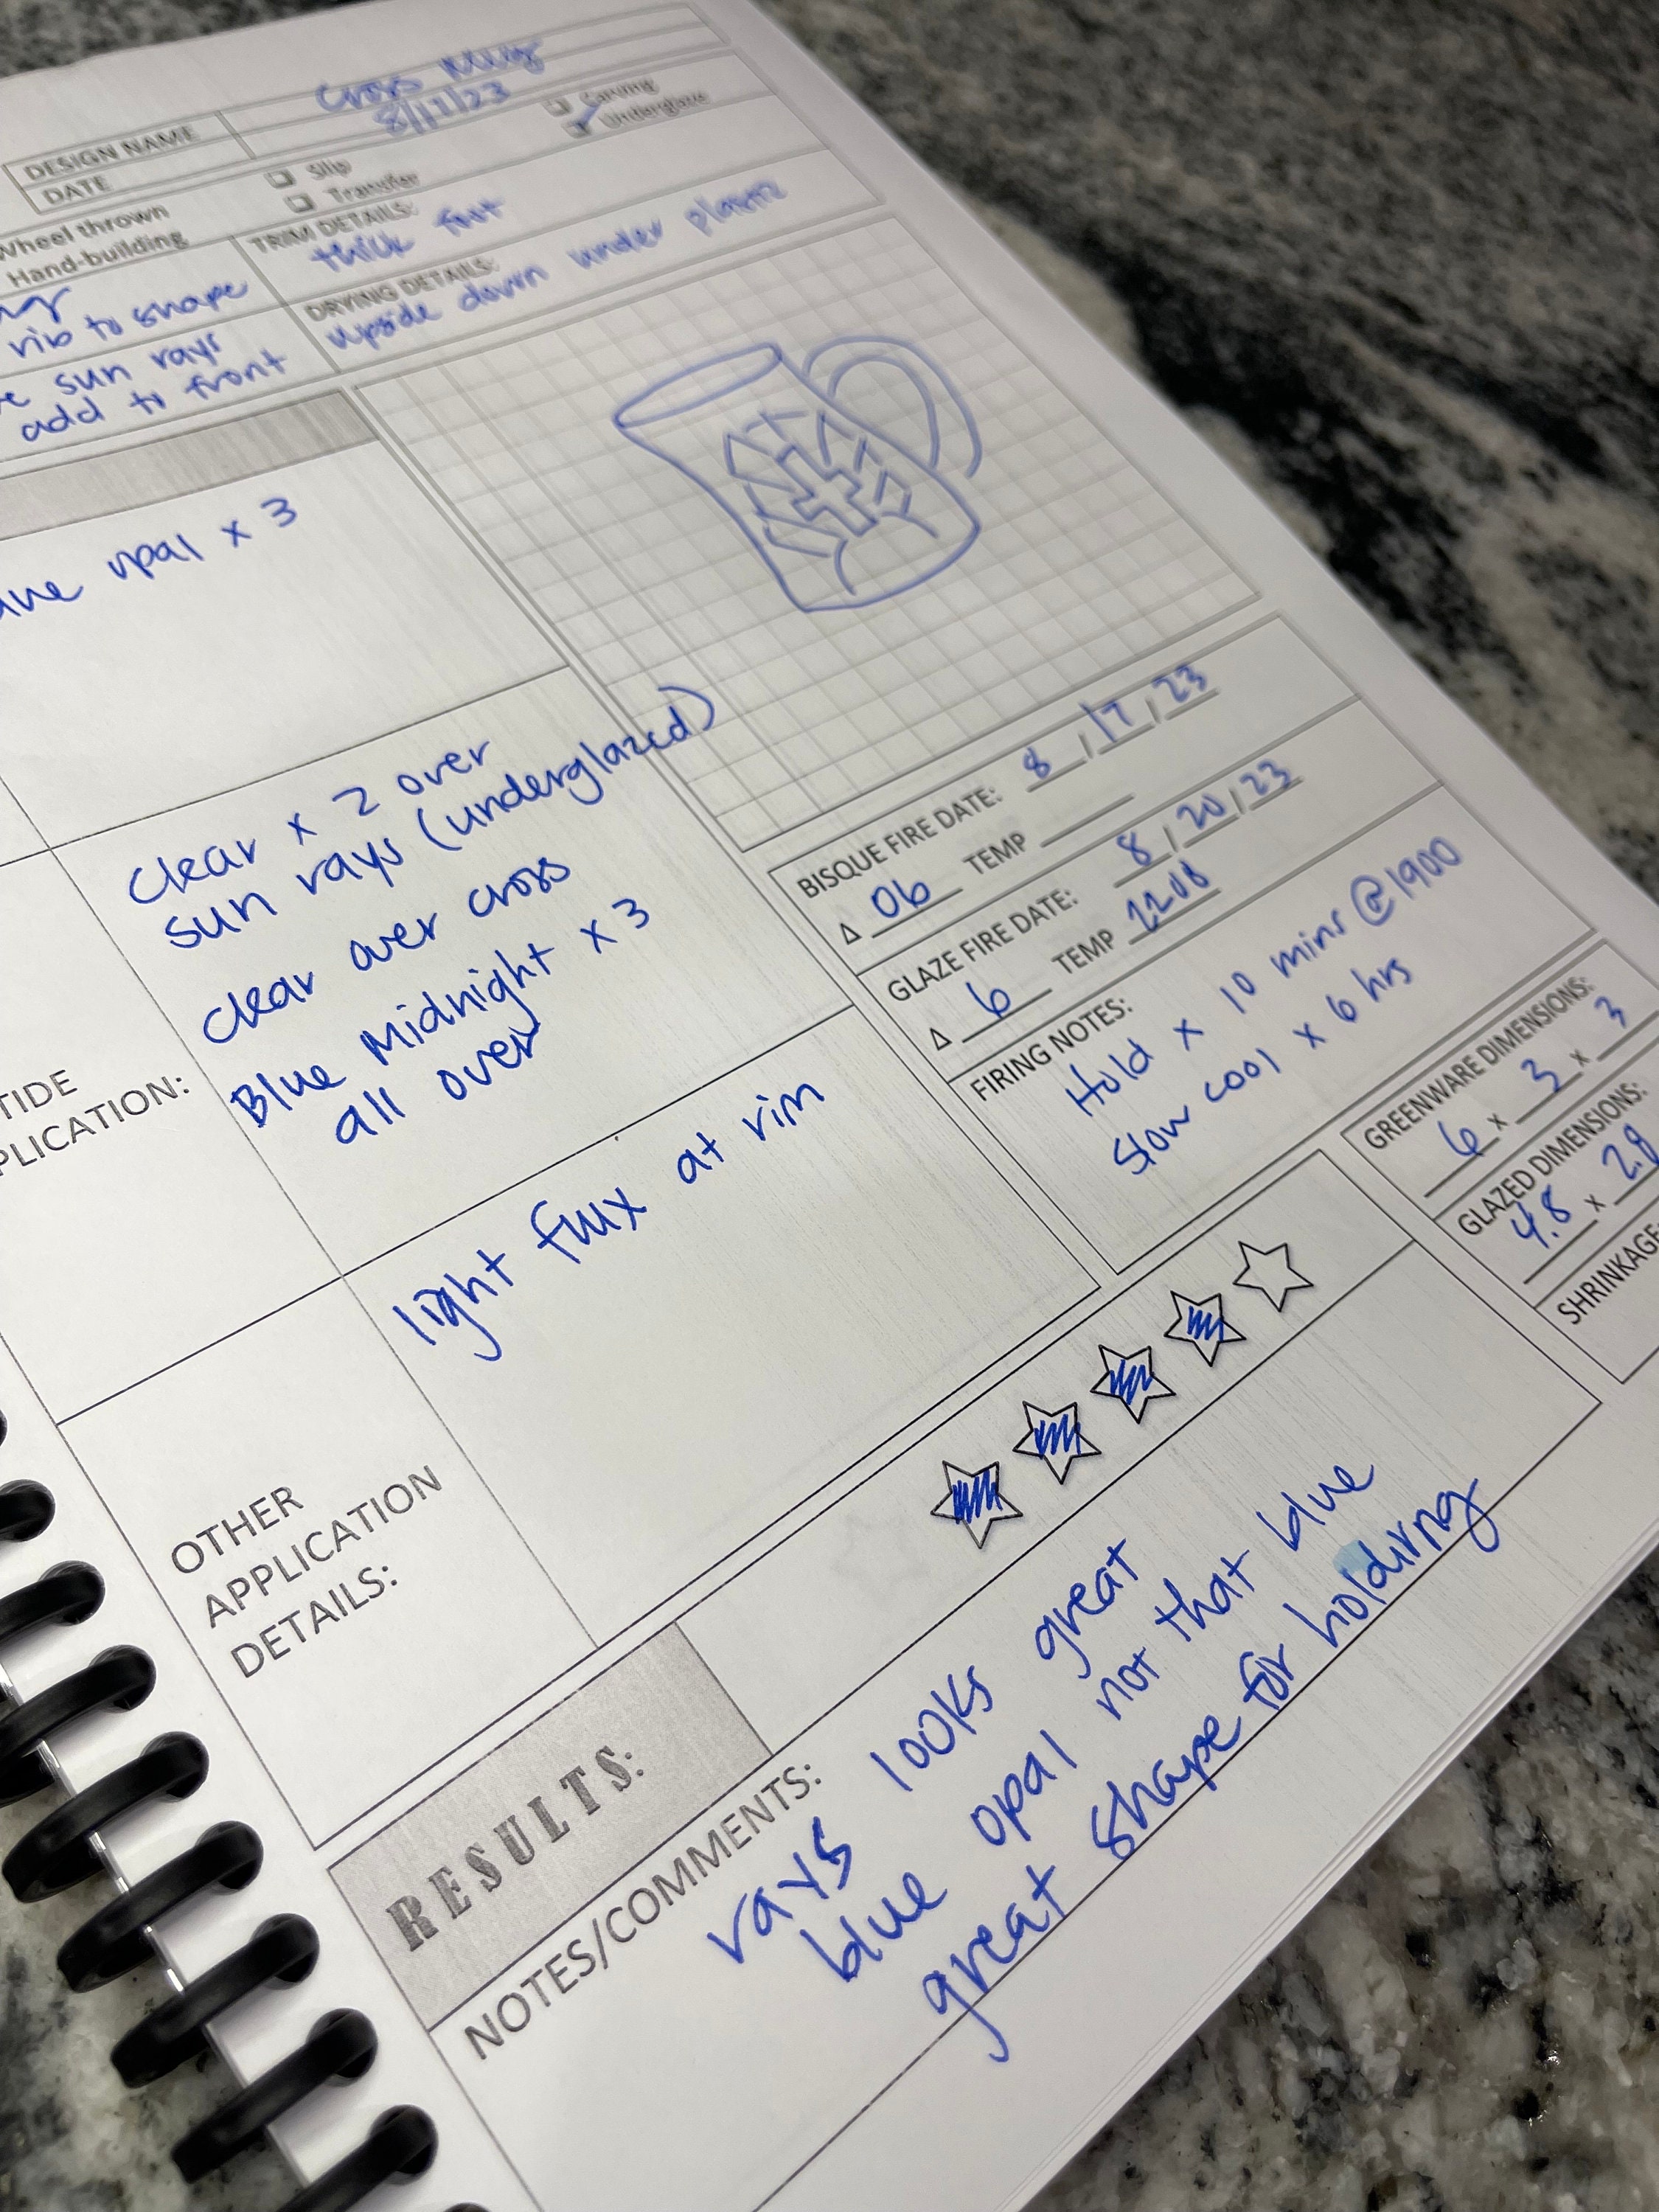 DESIGN NAME Cross Mug
DATE 8/17/23
Wheel thrown
Hand-building
Slip
Transfer
Carving
Underglaze
rib to shape
sun rays
add to front
TRIM DETAILS:
thick foot
DRYING DETAILS:
upside down under plastic
opal x 3
BISQUE FIRE DATE: 8/17/23
Δ 06 TEMP
GLAZE FIRE DATE: 8/20/23
Δ 6 TEMP 2208
FIRING NOTES:
Hold x 10 mins @1900
Slow cool x 6 hrs
GREENWARE DIMENSIONS:
6 x 3 x 3
GLAZED DIMENSIONS:
4.8 x 2.8
SHRINKAGE
TIDE
PLICATION:
clear x 2 over
sun rays (underglazed)
clear over cross
Blue Midnight x 3
all over
OTHER
APPLICATION
DETAILS:
light flux at rim
RESULTS:
NOTES/COMMENTS:
rays looks great
blue opal not that blue
great shape for holdirng